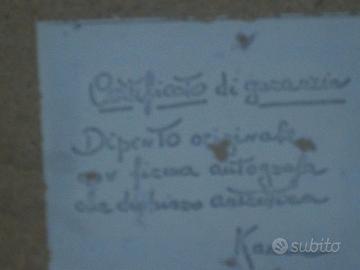 Certificato di garanzia
Dipinto originale
con firma autografa
che dichiaro autentica
subito